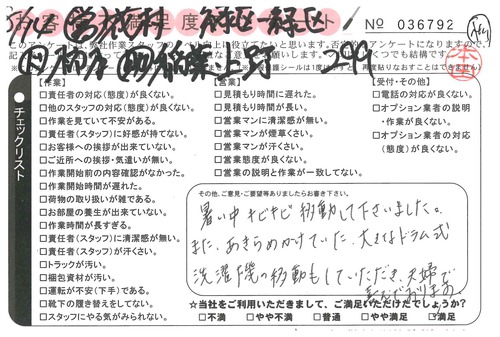 No 036792
チェックリスト
【作業】
□責任者の対応(態度)が良くない。
□他のスタッフの対応(態度)が良くない。
□作業を見ていて不安がある。
□責任者(スタッフ)に好感が持てない。
□お客様への挨拶が出来ていない。
□ご近所への挨拶・気遣いが無い。
□作業開始前の内容確認がなかった。
□作業開始時間が遅れた。
□荷物の取り扱いが雑である。
□お部屋の養生が出来ていない。
□作業時間が長すぎる。
□責任者(スタッフ)に清潔感が無い。
□責任者(スタッフ)が汗くさい。
□トラックが汚い。
□梱包資材が汚い。
□運転が不安(下手)である。
□靴下の履き替えをしてない。
□スタッフにやる気がみられない。
【営業】
□見積もり時間に遅れた。
□見積もり時間が長い。
□営業マンに清潔感が無い。
□営業マンが煙草くさい。
□営業マンが汗くさい。
□営業態度が良くない。
□営業の説明と作業が一致してない。
【受付・その他】
□電話の対応が良くない。
□オプション業者の説明
・作業が良くない。
□オプション業者の対応
(態度)が良くない。
その他、ご意見・ご要望等ありましたらお書き下さい。
暑い中 キビキビ移動して下さいました。
また、あきらめかけていた、大きなドラム式
洗濯機の移動もしていただき、夫婦で
☆当社をご利用いただきまして、ご満足いただけたでしょうか?
□不満 □やや不満 □普通 □やや満足 □満足